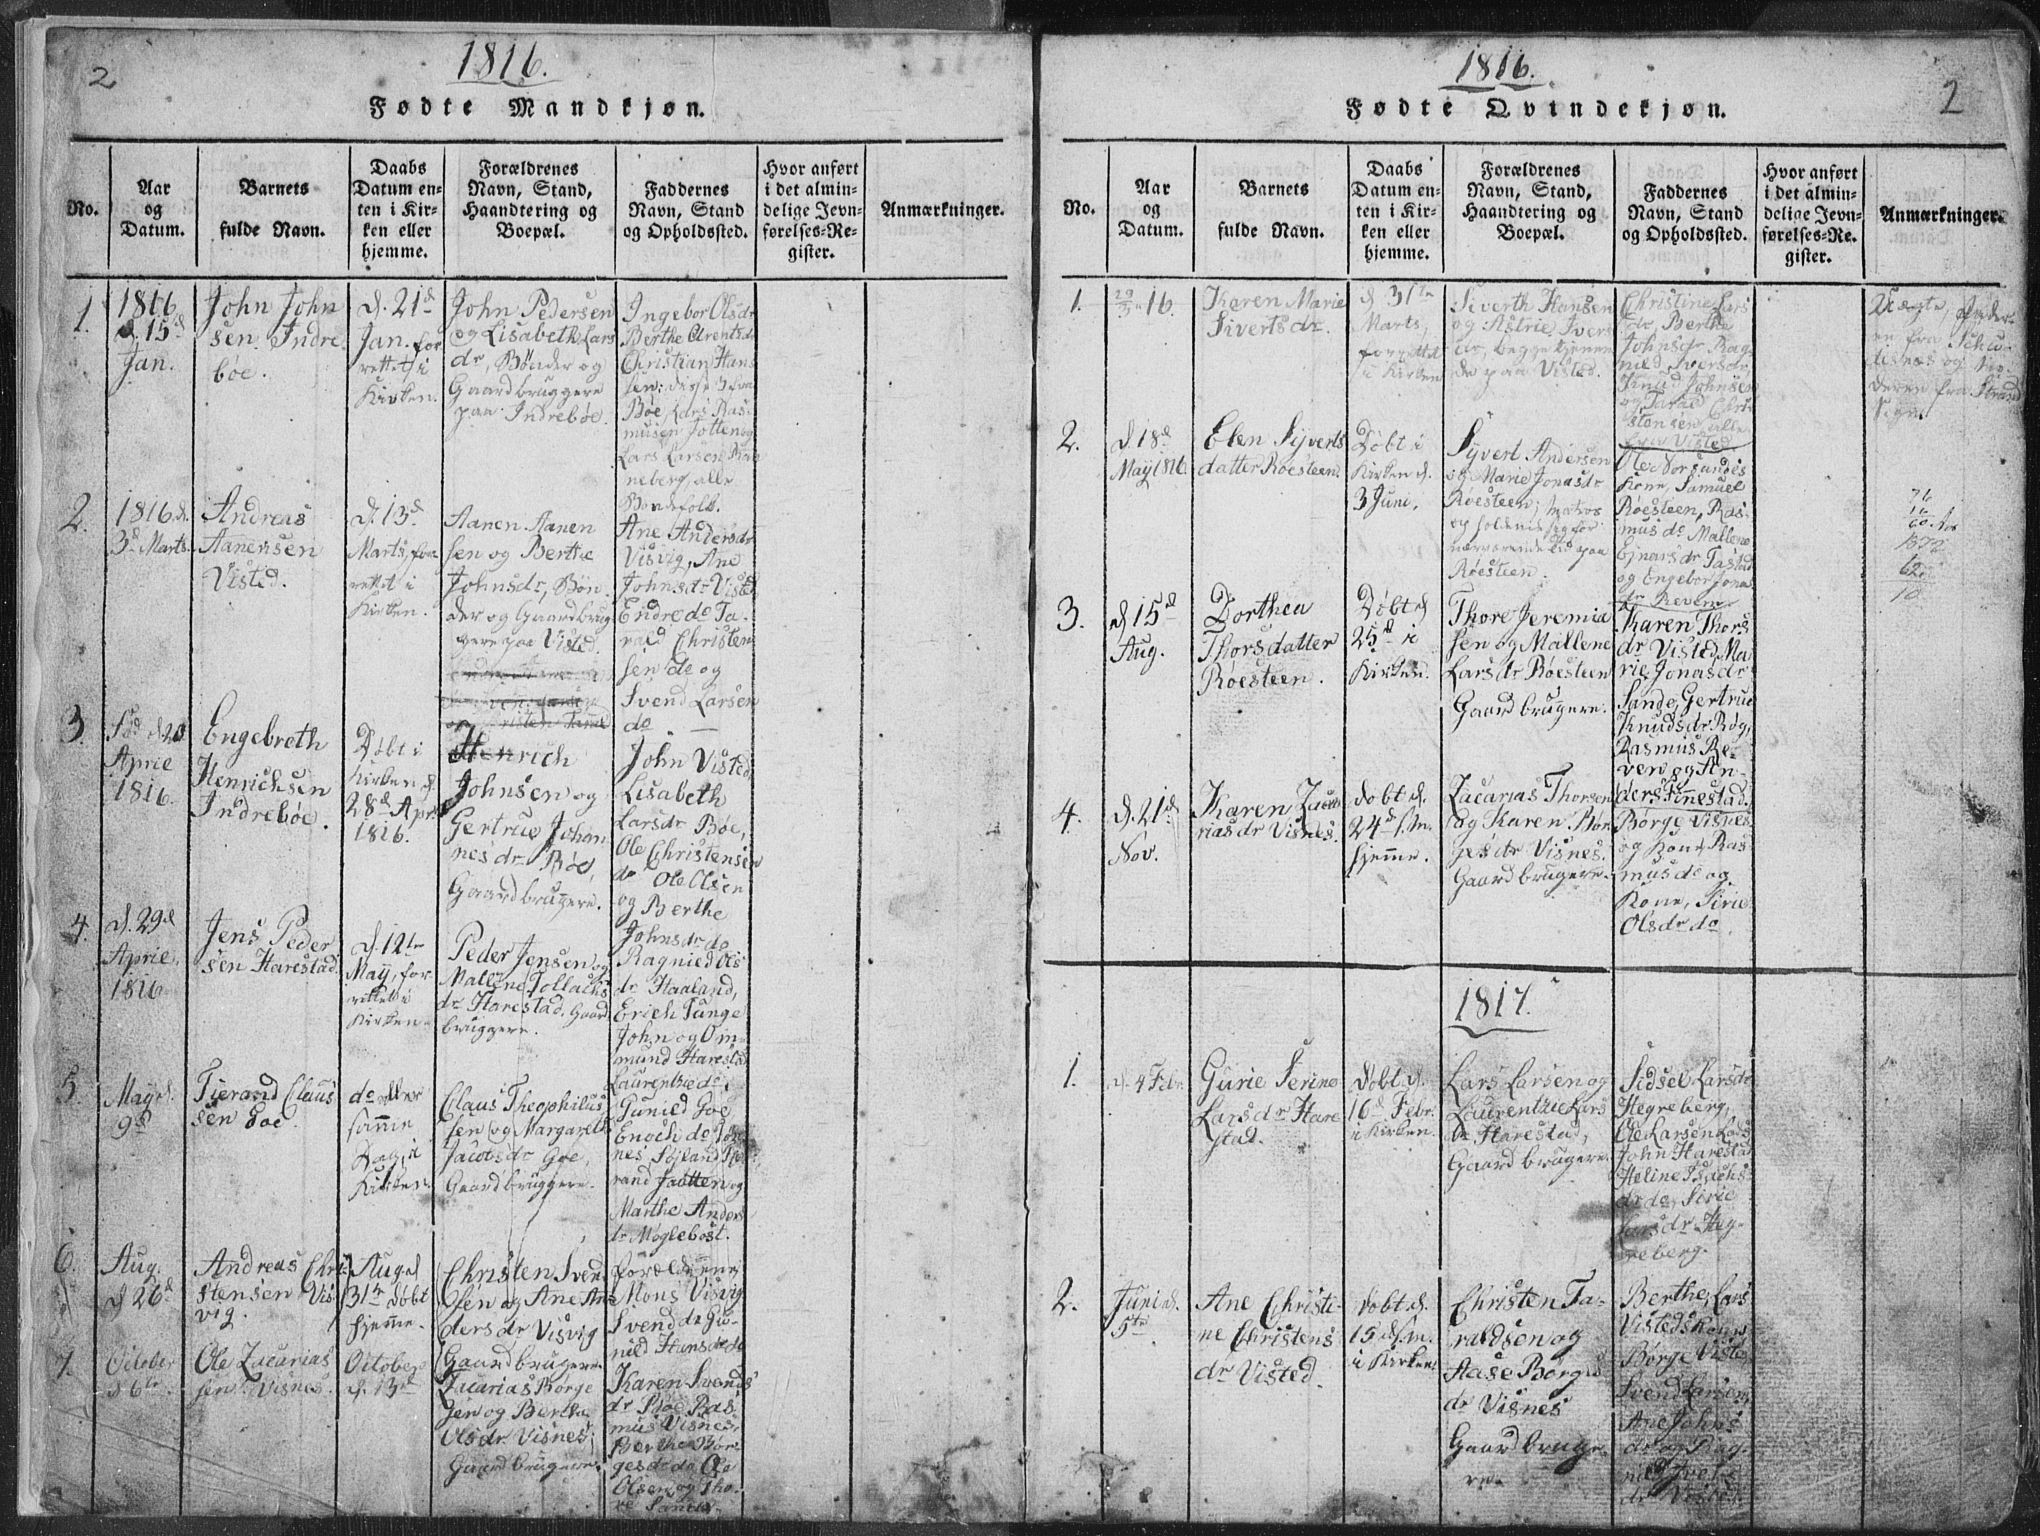 2
1816.
Fødte Mandkjøn.
No.
Aar
og
Datum.
Barnets
fulde Navn.
Daabs
Datum en-
ten i Kir-
ken eller
hjemme.
Forældrenes
Navn, Stand,
Haandtering og
Boepæl.
Faddernes
Navn, Stand
og Opholdssted.
Hvor anført
i det almin-
delige Jevn-
førelses-Re-
gister.
Anmærkninger.
1.
1816
d. 15d
Jan.
John John
sen Indre
bøe.
d. 21d
Jan. for
rettet i
Kirken.
John Pedersen
og Lisabeth Lars
dr, Bønder og
Gaardbruggere
paa Indrebøe.
Ingebor Olsdr
Berthe Arentsdr
Christian Han
sen: disse 3 fra
Bøe, Lars Ras-
musen Jotten og
Lars Larsen
neberg, alle
Bondefolk.
2.
1816 d.
3d Marts.
Andreas
Aanensen
Visted.
d. 13d
Marts, for
rettet i
Kirken.
Aanen Aanen
sen og Berthe
Johnsdr, Bøn
der og Gaardbrug
gere paa Visted.
Ane Andersdr
Visvig, Ane
Johnsdr Visted
Endre do Ta-
rald Christen
sen do og
Svend Larsen
do
3.
Fød d. 20
Aprie
1816.
Engebreth
Henrichsen
Indrebøe.
Døbt i
Kirken d.
28d Apr.
1816.
Henrich
Johnsen og
Gertrue Johan
nesdr Bøe,
Gaardbruggere.
John Visted
Lisabeth
Larsdr Bøe,
Ole Christensen
do Ole Olsen
og Berthe
Johnsdr do
4.
d. 29d
Aprie.
1816
Jens Peder
sen Harestad
d. 12te
May, for
rettet i
Kirken.
Peder Jensen og
Mallene Tollachs
dr Harestad, Gaard
bruggere.
Ragnied Ols
dr Haaland,
Erich Tunge
John og Om
mund Harestad
Laurentze do
5.
May d.
9d
Tierand Claus
sen Goe
do eller
samme
Dag, i
Kirken
Claus Theophilus
sen og Margarethe
Jacobsdr Goe,
Gaardbruggere.
Gunild Goe
Enoch do
nes
rand Jaatten og
Marthe Anders
dr Møglebost.
6.
Aug.
d 26d
Andreas Chri
stensen Vis-
vig.
Aug. d
31te døbt
hjemme.
Christen Svend
sen og Ane An-
dersdr Visvig
Gaardbrugere.
Forældrene
Mons Visvig
Svend do Gu-
nild Hansdr do
7.
October
d 6te.
Ole Zacarias
sen Visnes.
October
d. 13d
Zacarias Børge
sen og Berthe
Olsdr Visnes;
Gaardbrugere.
Karen Svends
dr Bøe Ras
mus Visnes,
Berthe Bør-
gesdr do Ole
Olsen og Tho-
re Sande.
1816.
2
Fødte Qvindekjøn.
No.
Aar
og
Datum.
Barnets
fulde Navn.
Daabs
Datum en-
ten i Kir-
ken eller
hjemme.
Forældrenes
Navn, Stand,
Haandtering og
Boepæl.
Faddernes
Navn, Stand
og Opholdssted.
Hvor anført
i det almin-
delige Jevn-
førelses-Re-
gister.
Anmærkninger.
1.
29/3 16.
Karen Marie
Sivertsdr.
d 31te
Marts,
forrettet
i Kirken
Siverth Hansen
og Astrie Ivers
dr, begge tjenen
de paa Visted.
Christine Lars
dr, Berthe
Johnsdr Rag-
nied Iversdr,
Knud Johnsen
og Tarae Chri
stensen, alle
fra Visted
Uægte, Fader
en fra
og Mo
deren fra Strand
Sogn.
2.
d. 18d
May 1816
Elen Syverts
datter Røesteen
Døbt i
Kirken d.
3 Juni.
Syvert Andersen
og Marie Jonasdr
Røesteen; Matros
og holdende sig for
nærværende Tid paa
Røesteen.
Ole
Kone, Samuel
Røesteen, Ras-
mus do Mallene
Ejnarsdr Tastad
og Engebor Jonas
dr Reven
3.
d 15d
Aug.
Dorthea
Thorsdatter
Røesteen.
Døbt d
25d i
Kirken.
Thore Jeremia
sen og Mallene
Larsdr Røesteen
Gaardbrugere.
Karen Thors
dr Visted, Ma
rie Jonasdr
Sande, Gertrue
Knudsdr Røg,
Rasmus Re-
ven og An-
ders Finnestad.
4.
d. 21d.
Nov.
Karen Zaca
riasdr Visnes.
døbt d.
24d s. m.
hjemme.
Zacarias Thorsen
og Karen Bør
gesdr Visnes.
Gaardbrugere.
Børge Visnes
og Kone, Ras-
mus do og
Kone, Sirie
Olsdr do.
1817.
1.
d. 4 Febr.
Gurie Serine
Larsdr Hare
stad.
døbt d.
16d Febr.
i Kirken.
Lars Larsen og
Laurentzie Lars
dr Harestad,
Gaardbrugere.
Sidsel Larsdr
Hegreberg,
Ole Larsen
John Harestad
Heline Isachs
dr do, Sirie
Larsdr Heg-
reberg.
2.
Juni d.
5te
Ane Christe-
ne Christens
dr Visted
døbt d.
15 d. s. m.
i Kirken
Christen Ta-
raldsen og
Aase Børges
dr Visnes
Gaardbruge-
re.
Berthe, Lars
Visteds Kone
Børge Visted
Svend Larsen,
Ane Johns
dr og Rag-
nild Ivers
dr Visted.